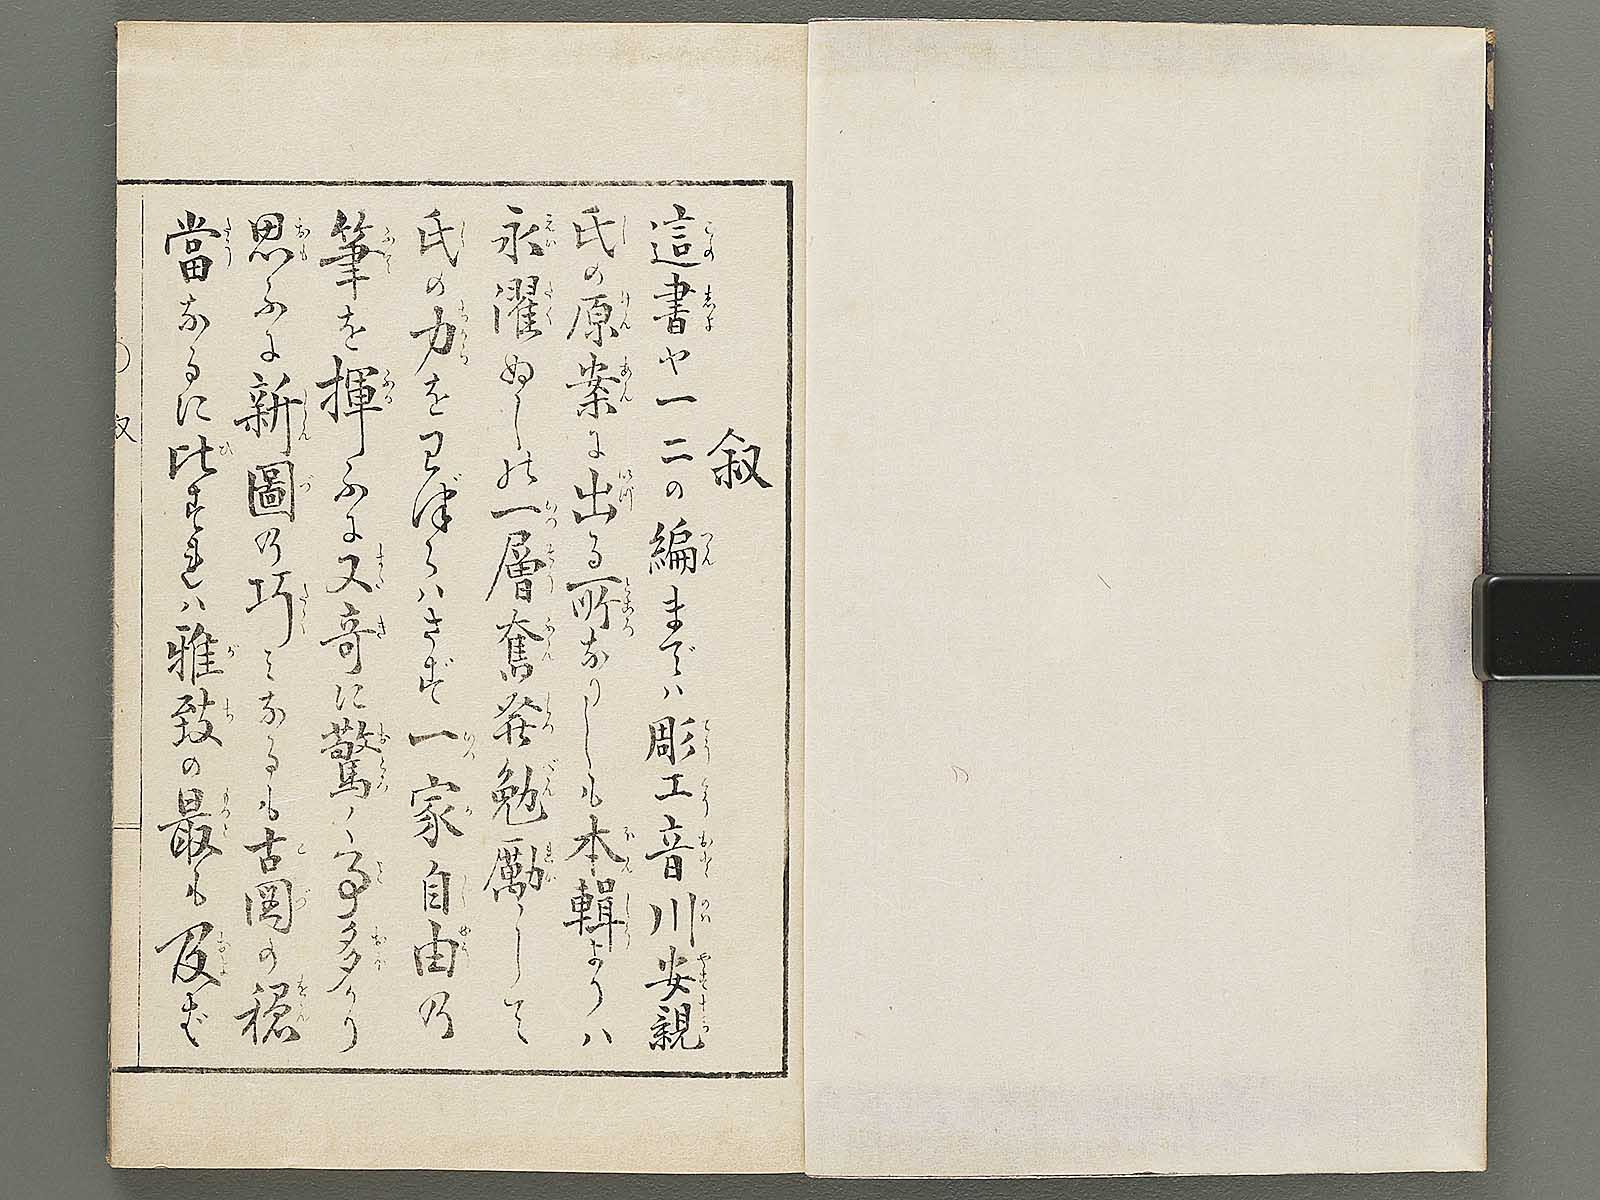 叙
這書や一二の編までハ彫工音川安親
氏の原案に出る所なりしも本輯よりハ
永濯ぬしの一層奮発勉励して
氏の力をわづらハさず一家自由の
筆を揮ふに又奇に驚く事多かり
思ふに新圖の巧みなるも古図の穏
當なるに比すれハ雅致の最も及ば
叙